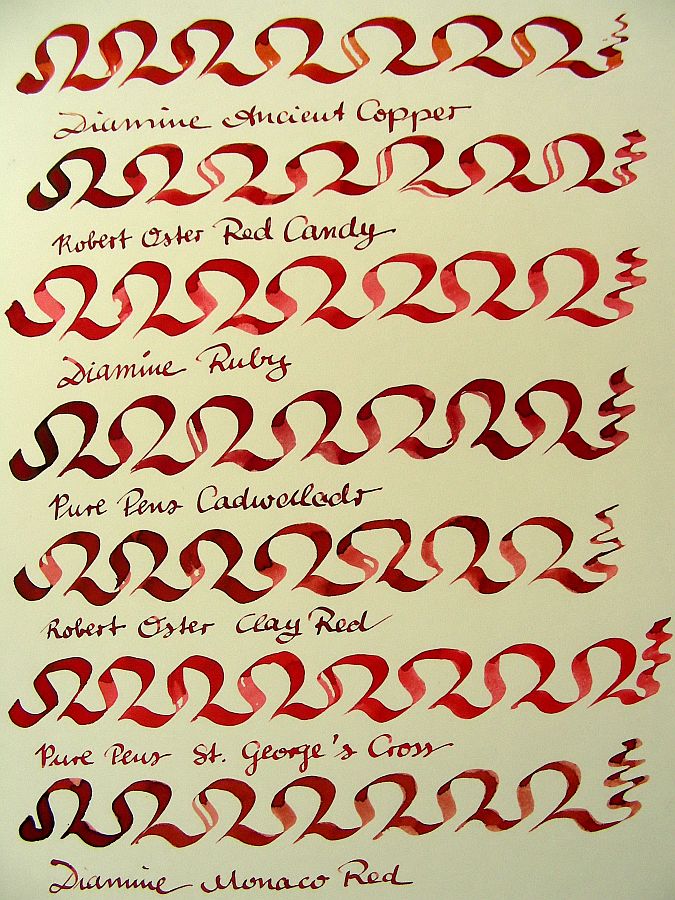 Diamine Ancient Copper
Robert Oster Red Candy
Diamine Ruby
Pure Pens Cadwalladr
Robert Oster Clay Red
Pure Pens St. George's Cross
Diamine Monaco Red